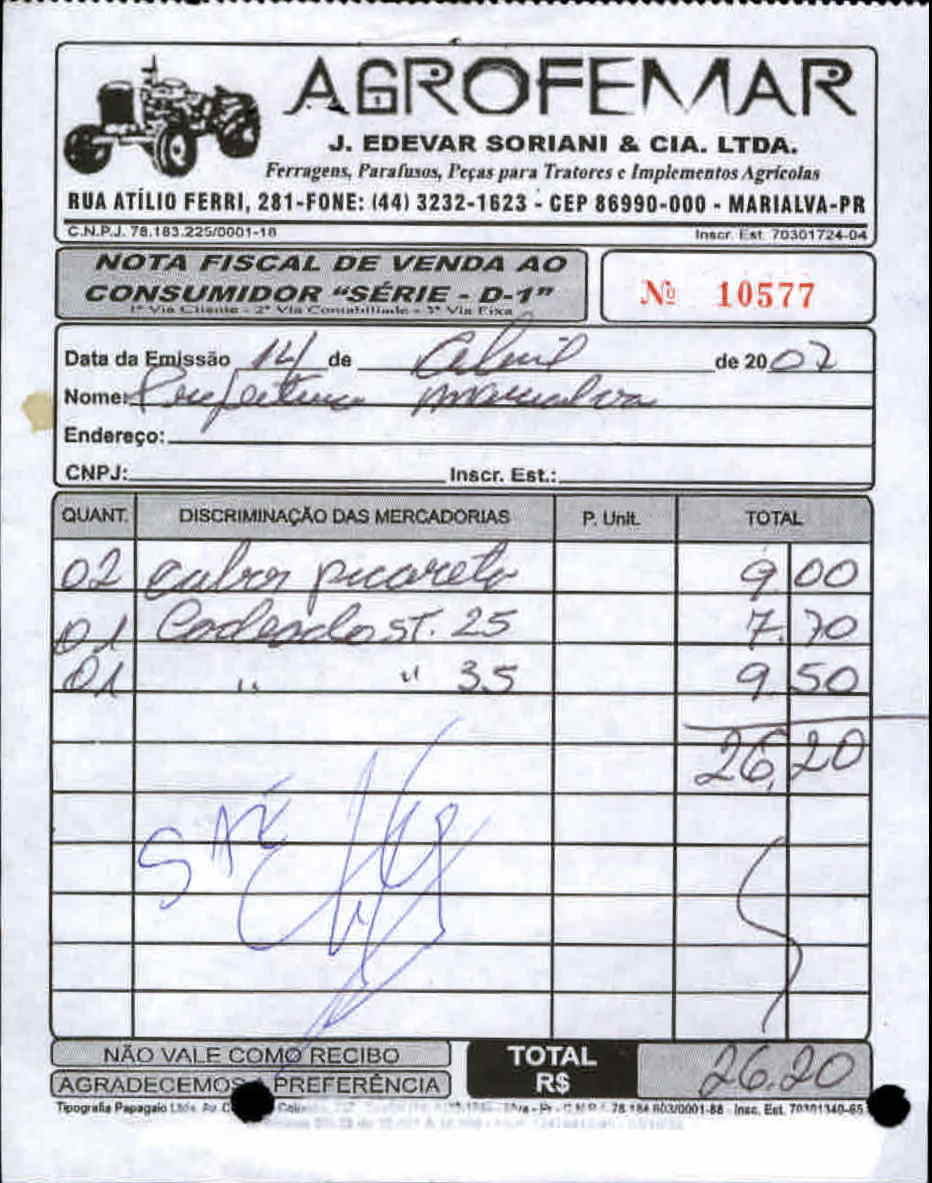 AGROFEMAR
J. EDEVAR SORIANI & CIA. LTDA.
Ferragens, Parafusos, Peças para Tratores e Implementos Agrícolas
RUA ATÍLIO FERRI, 281-FONE: (44) 3232-1623 - CEP 86990-000 - MARIALVA-PR
C.N.P.J. 78.183.225/0001-18 Inscr. Est. 70301724-04
NOTA FISCAL DE VENDA AO
CONSUMIDOR "SÉRIE - D-1"
1ª Via Cliente - 2ª Via Contabilidade - 3ª Via Fixa
Nº 10577
Data da Emissão 14 de Abril de 2007
Nome: Prefeitura Marialva
Endereço:
CNPJ: Inscr. Est.:
QUANT. DISCRIMINAÇÃO DAS MERCADORIAS P. Unit. TOTAL
02 cabos picareta 9.00
01 Cadeado ST. 25 7.70
01 " " 35 9.50
26,20
SAE
NÃO VALE COMO RECIBO
AGRADECEMOS A PREFERÊNCIA
TOTAL R$ 26.20
Tipografia Papagaio Ltda. Av. - Pr - C.N.P.J. 78.184.603/0001-88 - Insc. Est. 70301340-65